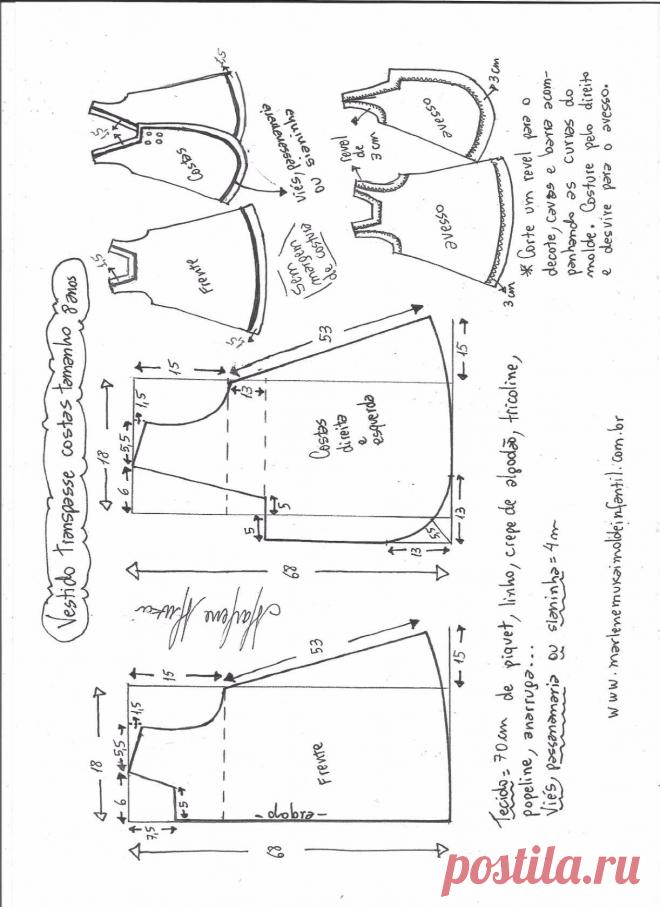 Vestido transpasse costas tamanho 8 anos
18
6
5,5
1,5
15
7,5
5
68
53
15
Frente
-dobra-
Marlene Mukai
18
6
5,5
1,5
15
13
53
5
5
68
Costas
direita
e
esquerda
13
5,5
13
15
1,5
Frente
1,5
1,5
Costas
1,5
viés, passamanaria
ou sianinha
Sem
margem
de costura
avesso
3cm
revel
de
3 cm
avesso
3 cm
* Corte um revel para o
decote, cavas e barra acom-
panhando as curvas do
molde. Costure pelo direito
e desvire para o avesso.
Tecido = 70 cm de piquet, linho, crepe de algodão, tricoline,
popeline, anarruga...
Viés, passamanaria ou sianinha = 4m
www.marlenemukaimoldeinfantil.com.br
postila.ru